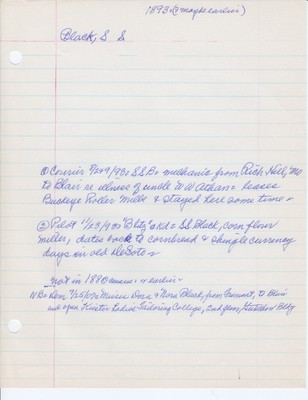 1893 (& maybe earlier)
Black, S S
① Courier 9/29/93= S S B= mechanic from Rich Hill, Mo
to Blair re illness of uncle W W Athan= leases
Buckeye Roller Mills & stayed here some time=
② Pilot 11/23/93= "B City" ad = SS Black, corn flour
miller, dates back to cornbread & shingle currency
days in old DeSoto=
not in 1880 census or earlier=
N B= Dem 7/25/07= Misses Dora & Nora Black, from Fremont, to Blair
and open Kiester Ladies Tailoring College, 2nd floor, Bldg